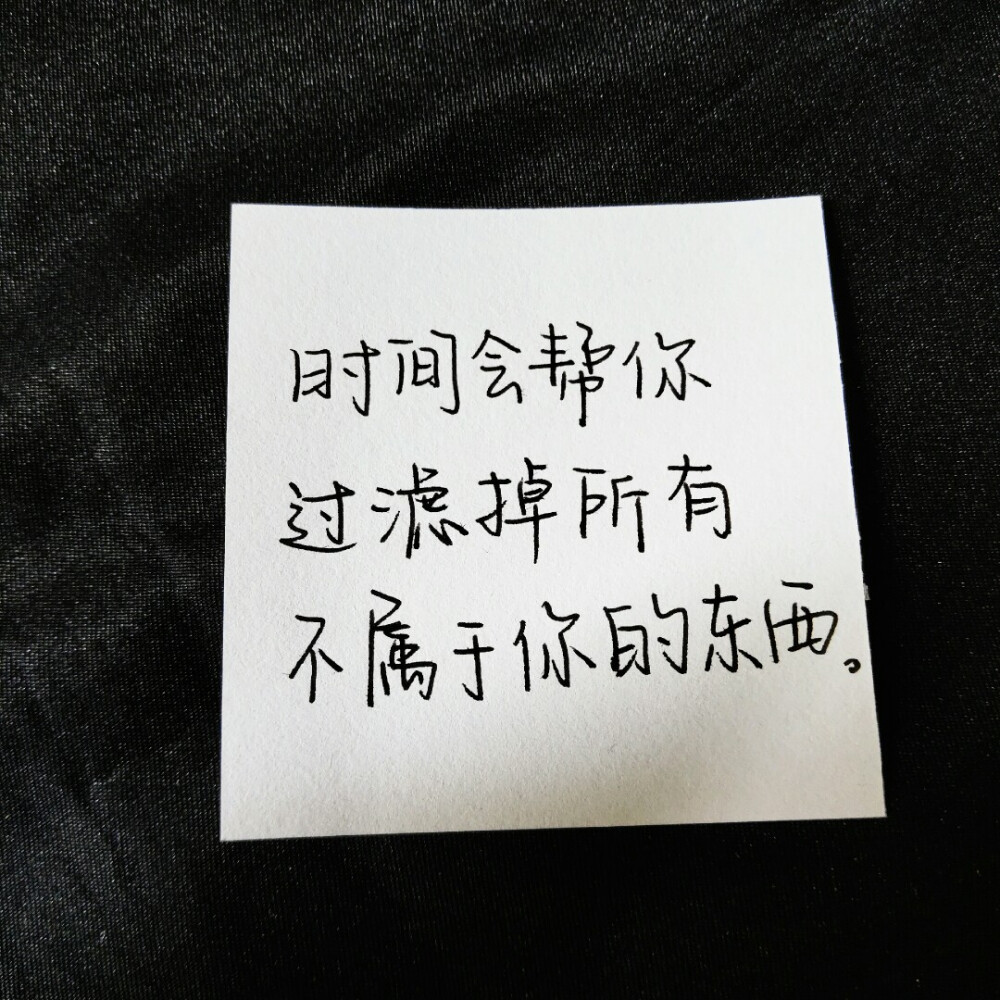 时间会帮你
过滤掉所有
不属于你的东西。